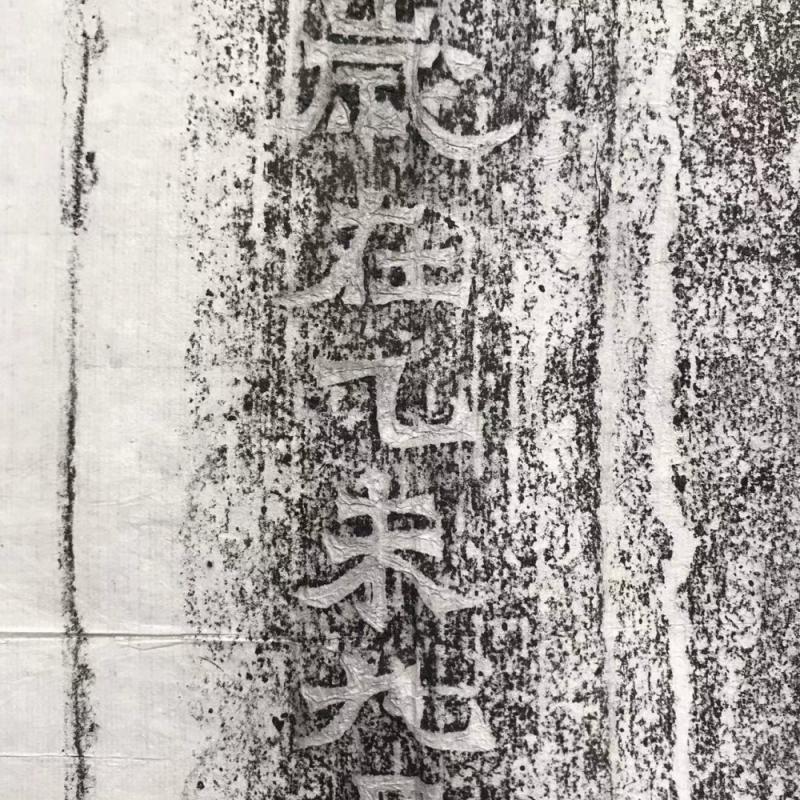 歲在乙未九